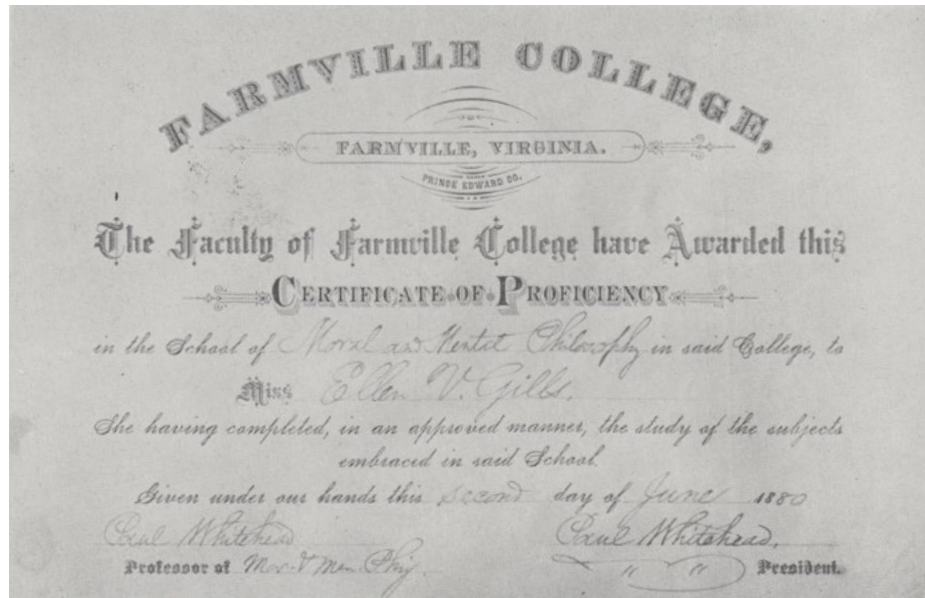 FARMVILLE COLLEGE,
FARMVILLE, VIRGINIA.
PRINCE EDWARD CO.
The Faculty of Farmville College have Awarded this
CERTIFICATE OF PROFICIENCY
in the School of Moral and Mental Philosophy in said College, to
Miss Ellen V. Gills.
She having completed, in an approved manner, the study of the subjects
embraced in said School.
Given under our hands this second day of June 1880
Paul Whitehead Paul Whitehead,
Professor of Mor. & Men. Phi. " " President.